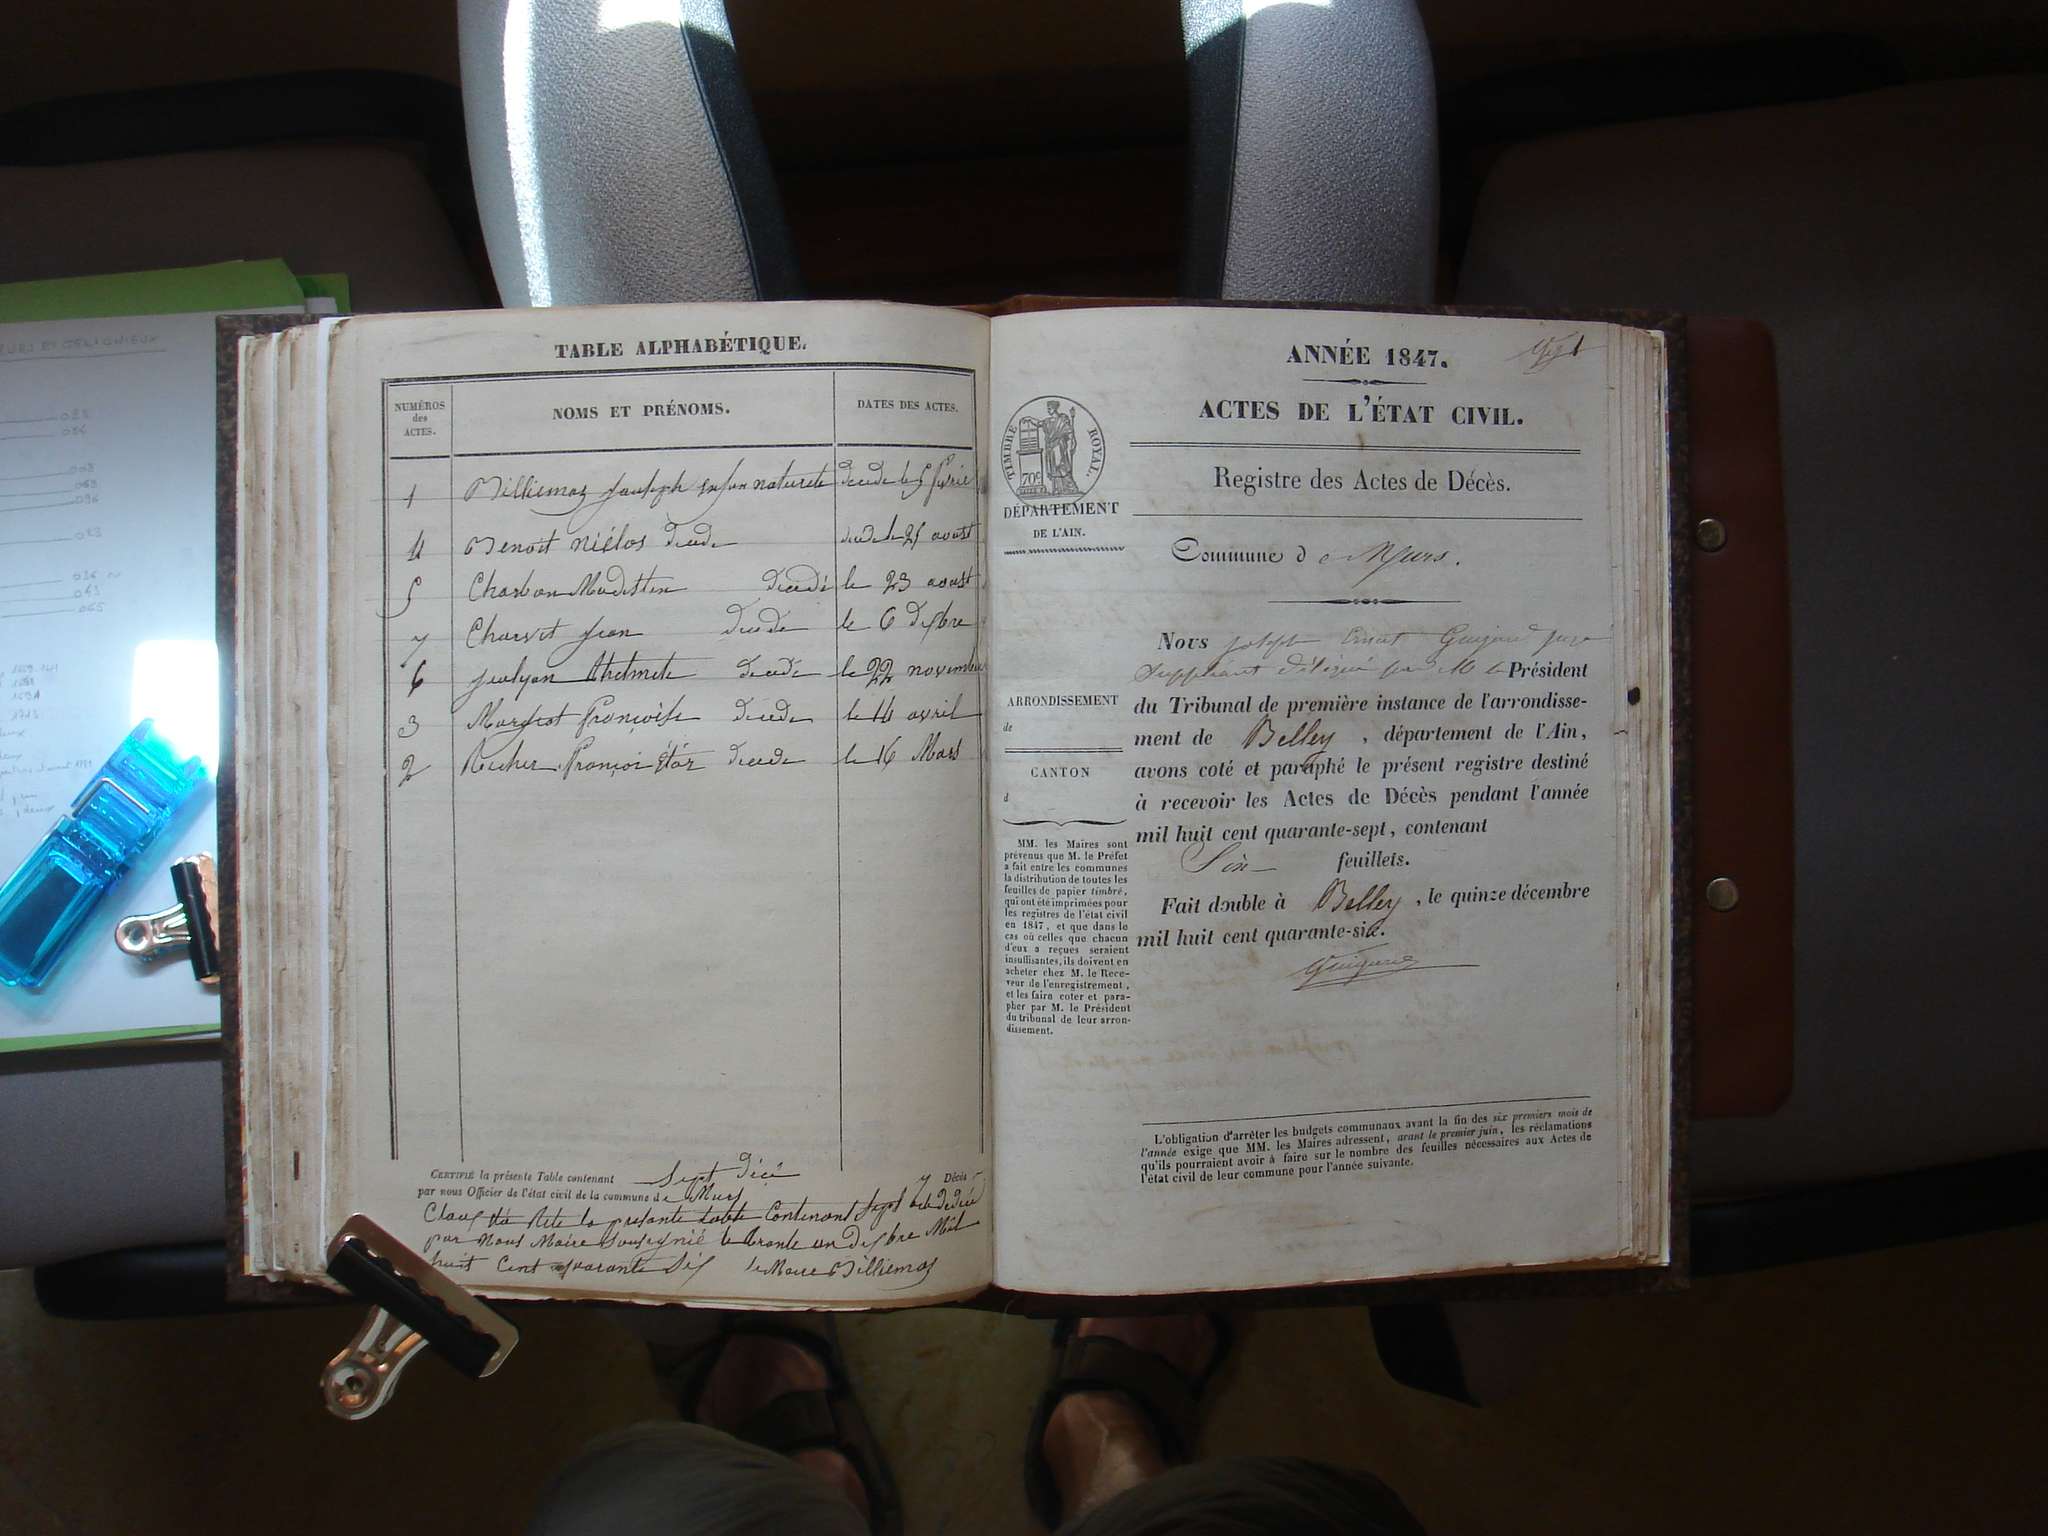 TABLE ALPHABÉTIQUE.
NUMÉROS
des
ACTES.
NOMS ET PRÉNOMS.
DATES DES ACTES.
1 Billiemaz Joseph decede le 5
4 Benoit decede decede le 25 aoust
5 Charbon decedé le 23 aoust
7 Charvet Jean decede le 6 desbre
6 decede le 22 novembre
3 Françoise decede le 14 avril
2 François decede le 16 Mars
CERTIFIÉ la présente Table contenant Sept décé 7 Décès
par nous Officier de l'état civil de la commune de Murs
la presante table Contenant Sept acte de décé
par Nous Maire Sousegnié le trante un desbre Mil
huit Cent quarante le Maire Billiemaz
ANNÉE 1847.
ACTES DE L'ÉTAT CIVIL.
TIMBRE ROYAL.
70c
Registre des Actes de Décès.
DÉPARTEMENT
DE L'AIN.
Commune de Murs.
Nous Joseph juge
Suppléant délégué par M. le Président
du Tribunal de première instance de l'arrondisse-
ment de Belley, département de l'Ain,
avons coté et paraphé le présent registre destiné
à recevoir les Actes de Décès pendant l'année
mil huit cent quarante-sept, contenant
Six feuillets.
Fait double à Belley, le quinze décembre
mil huit cent quarante-six.
ARRONDISSEMENT
de
CANTON
d
MM. les Maires sont
prévenus que M. le Préfet
a fait entre les communes
la distribution de toutes les
feuilles de papier timbré,
qui ont été imprimées pour
les registres de l'état civil
en 1847, et que dans le
cas où celles que chacun
d'eux a reçues seraient
insuffisantes, ils doivent en
acheter chez M. le Rece-
veur de l'enregistrement,
et les faire coter et para-
pher par M. le Président
du tribunal de leur arron-
dissement.
L'obligation d'arrêter les budgets communaux avant la fin des six premiers mois de
l'année exige que MM. les Maires adressent, avant le premier juin, les réclamations
qu'ils pourraient avoir à faire sur le nombre des feuilles nécessaires aux Actes de
l'état civil de leur commune pour l'année suivante.